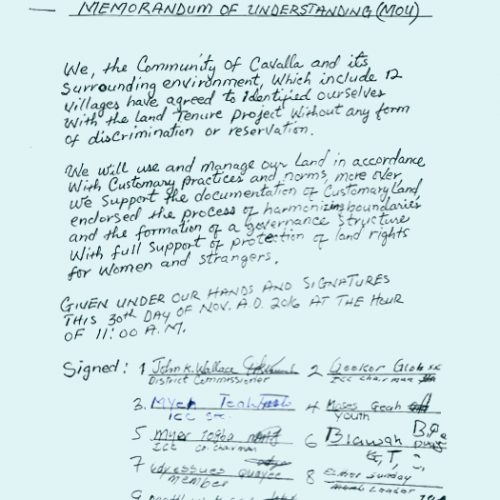 MEMORANDUM OF UNDERSTANDING (MOU)
We, the Community of Cavalla and its
surrounding environment, which include 12
villages have agreed to identified ourselves
with the land Tenure project without any form
of discrimination or reservation.
We will use and manage our Land in accordance
With Customary practices and norms, more over
we support the documentation of Customary Land
endorsed the process of harmonizing boundaries
and the formation of a governance structure
With full support of protection of land rights
for women and strangers.
GIVEN UNDER OUR HANDS AND SIGNATURES
THIS 30th DAY OF NOV. A.D. 2016 AT THE HOUR
OF 11:00 A.M.
Signed: 1 John K. Wallace
District Commissioner
2
ICC Chairman
3.
4 Moses Geah
Youth
5
ICC co-chairman
6
7
member
8 Sunday
9